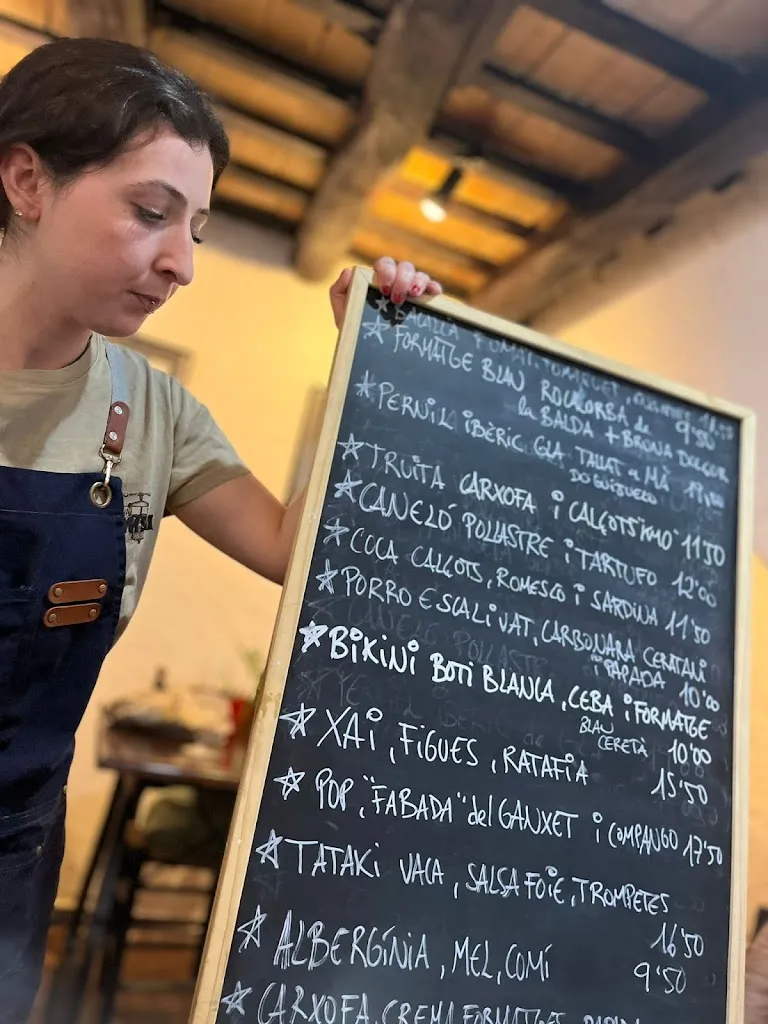 BACALLÀ
☆ FORMATGE BLAU ROCALORBA de
la BALDA + BRUNA DOLÇOR 9'50
☆ PERNIL IBÈRIC GLA TALLAT a MÀ
DO GUIJUELO
☆ TRUITA CARXOFA i CALÇOTS 11'50
☆ CANELÓ POLLASTRE i TARTUFO 12'00
☆ COCA CALÇOTS, ROMESCO i SARDINA 11'50
☆ PORRO ESCALIVAT, CARBONARA CERATANI
i PAPADA 10'00
☆ BIKINI BOTI BLANCA, CEBA i FORMATGE
BLAU
CERETÀ 10'00
☆ XAI, FIGUES, RATAFIA 15'50
☆ POP, "FABADA" del GANXET i COMPANGO 17'50
☆ TATAKI VACA, SALSA FOIE, TROMPETES
16'50
☆ ALBERGÍNIA, MEL, COMÍ 9'50
☆ CARXOFA, CREMA FORMATGES